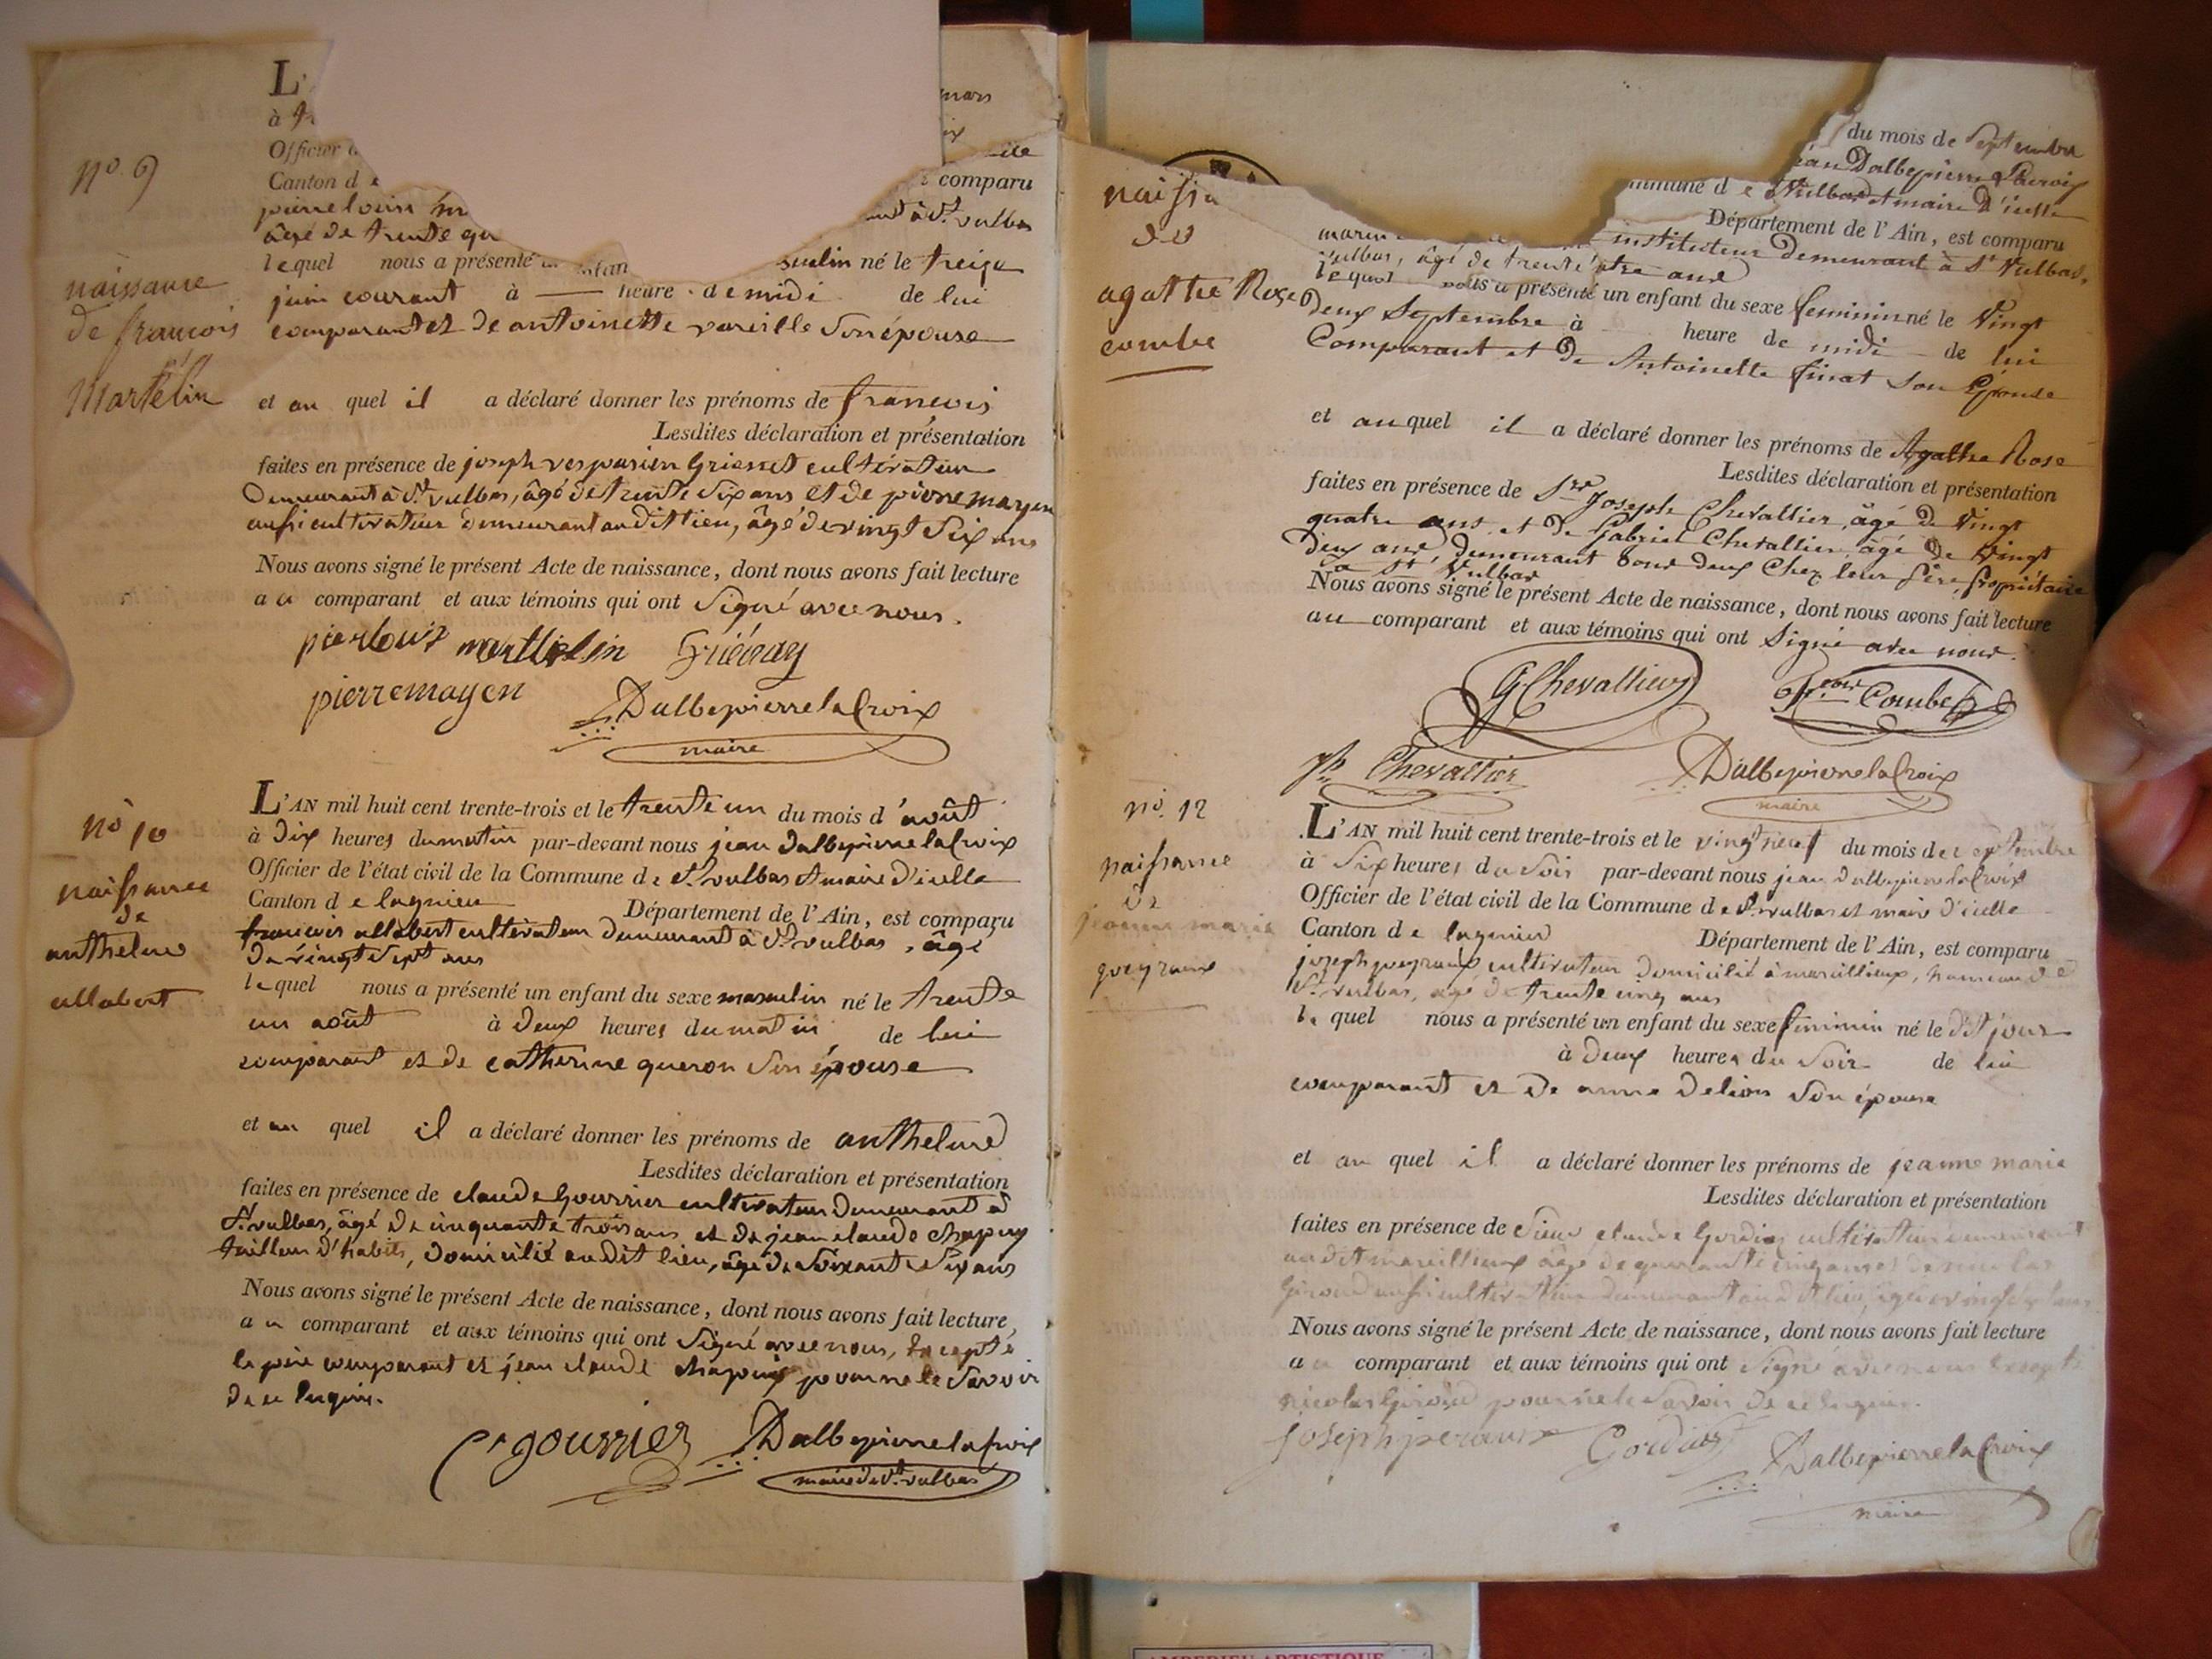 n.o 9
naissance
de françois
Martélin
L'
à tr
Officier d
Canton de
pierre louis m
âgé de trente qu
mars
comparu
à St. vulbas
lequel nous a présenté un enfan sculin né le treize
juin courant à — heure de midi de lui
comparant et de antoinette vareille son épouse
et au quel il a déclaré donner les prénoms de francois
Lesdites déclaration et présentation
faites en présence de joseph vespasien cultivateur
demeurant à St. vulbas, âgé de trente six ans et de pierre mayen
aussi cultivateur demeurant audit lieu, âgé de vingt six ans
Nous avons signé le présent Acte de naissance, dont nous avons fait lecture
au comparant et aux témoins qui ont signé avec nous.
pierlouis marthelin
pierre mayen Dalbepierre la Croix
maire
n.o 10
naissance
de
anthelme
allabert
L'AN mil huit cent trente-trois et le trente un du mois d'août
à dix heures du matin par-devant nous jean dalbepierre la Croix
Officier de l'état civil de la Commune de St. vulbas et maire d'icelle
Canton de lagnieu Département de l'Ain, est comparu
francois allabert cultivateur demeurant à St. vulbas, âgé
de vingt sept ans
lequel nous a présenté un enfant du sexe masculin né le trente
un août à deux heures du matin de lui
comparant et de catherine queron son épouse
et au quel il a déclaré donner les prénoms de anthelme
Lesdites déclaration et présentation
faites en présence de claude Gourrier cultivateur demeurant à
St. vulbas, âgé de cinquante trois ans et de jean claude chapuy
tailleur d'habits, domicilié au dit lieu, âgé de soixante six ans
Nous avons signé le présent Acte de naissance, dont nous avons fait lecture
au comparant et aux témoins qui ont signé avec nous, excepté
le père comparant et jean claude chapuy pour ne le savoir
de ce enquis.
Cl gourrier Dalbepierre la Croix
maire de St. vulbas
naissa
de
agathe Rose
combe
du mois de Septembre
ean Dalbepierre Lacroix
mmune de St Vulbas et maire d'icelle
Département de l'Ain, est comparu
instituteur demeurant à St Vulbas,
vulbas, âgé de trente quatre ans
lequel nous a présenté un enfant du sexe feminin né le Vingt
deux Septembre à heure de midi de lui
Comparant et de Antoinette finat son Epouse
et auquel il a déclaré donner les prénoms de Agathe Rose
Lesdites déclaration et présentation
faites en présence de Joseph Chevallier, âgé de Vingt
quatre ans et de Gabriel Chevallier, âgé de Vingt
deux ans, demeurant tous deux Chez leur père, propriétaire
à St Vulbas
Nous avons signé le présent Acte de naissance, dont nous avons fait lecture
au comparant et aux témoins qui ont Signé avec nous.
G Chevallier Combe
Jh Chevallier Dalbepierre la Croix
maire
n.o 12
naissance
de
jeanne marie
L'AN mil huit cent trente-trois et le vingt neuf du mois de septembre
à Six heures du Soir par-devant nous jean dalbepierre la Croix
Officier de l'état civil de la Commune de St. vulbas et maire d'icelle
Canton de lagnieu Département de l'Ain, est comparu
joseph cultivateur domicilié à marcillieux, hameau de
St. vulbas, âgé de trente cinq ans
lequel nous a présenté un enfant du sexe feminin né le dit jour
à deux heures du Soir de lui
comparant et de anne delion son épouse
et au quel il a déclaré donner les prénoms de jeanne marie
Lesdites déclaration et présentation
faites en présence de Sieur claude Gordiag cultivateur demeurant
au dit marcillieux âgé de quarante cinq ans et de nicolas
Giroud aussi cultivateur demeurant au dit lieu, âgé
Nous avons signé le présent Acte de naissance, dont nous avons fait lecture
au comparant et aux témoins qui ont signé avec nous excepté
nicolas Giroud pour ne le savoir de ce enquis.
joseph Dalbepierre la Croix
maire
AMBERIEU ARTISTIQUE